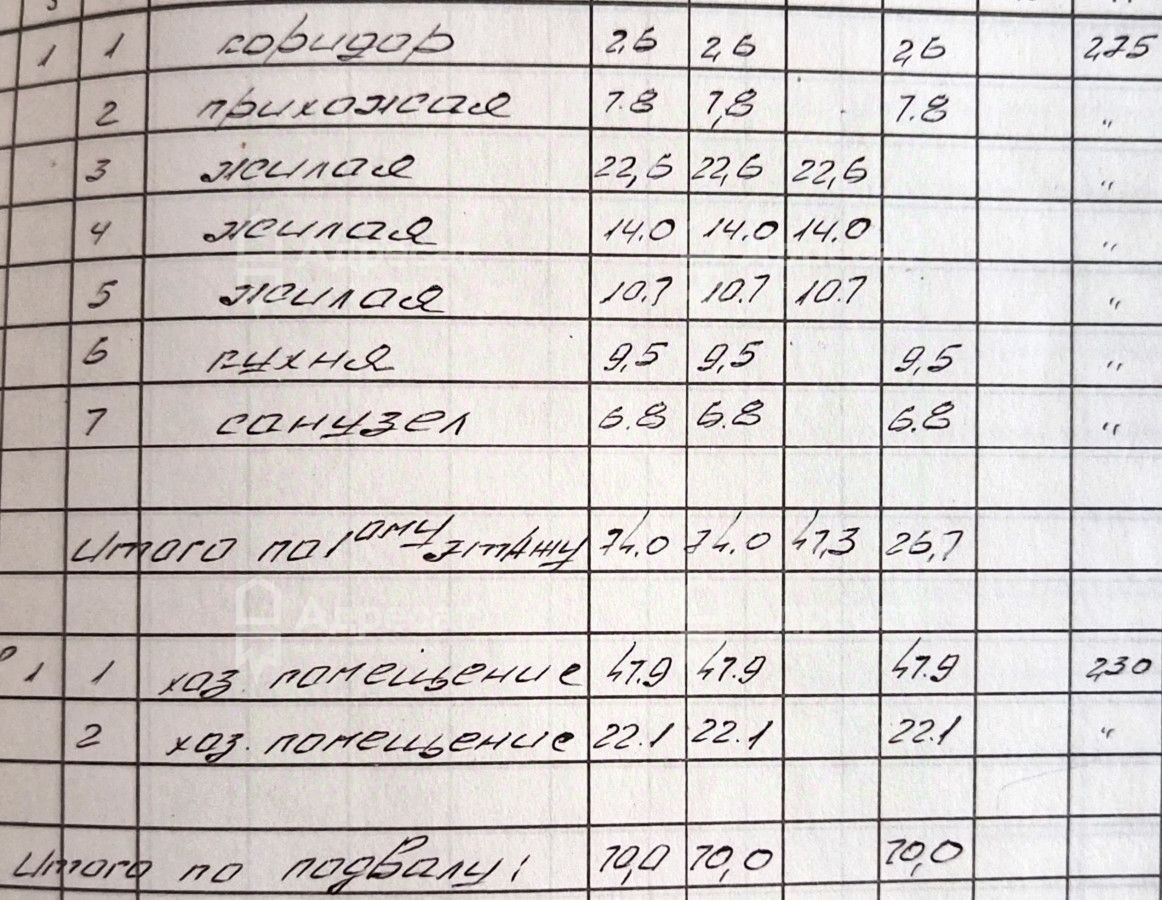 1 1 коридор 2,6 2,6 2,6 2,75
2 прихожая 7.8 7,8 7.8 "
3 жилая 22,6 22,6 22,6 "
4 жилая 14.0 14.0 14.0 "
5 жилая 10.7 10.7 10.7 "
6 кухня 9,5 9,5 9,5 "
7 санузел 6.8 6.8 6.8 "
Итого по 1ому этажу 74.0 74.0 47,3 26,7
1 1 хоз. помещение 47.9 47.9 47.9 2,30
2 хоз. помещение 22.1 22.1 22.1 "
Итого по подвалу: 70,0 70,0 70,0